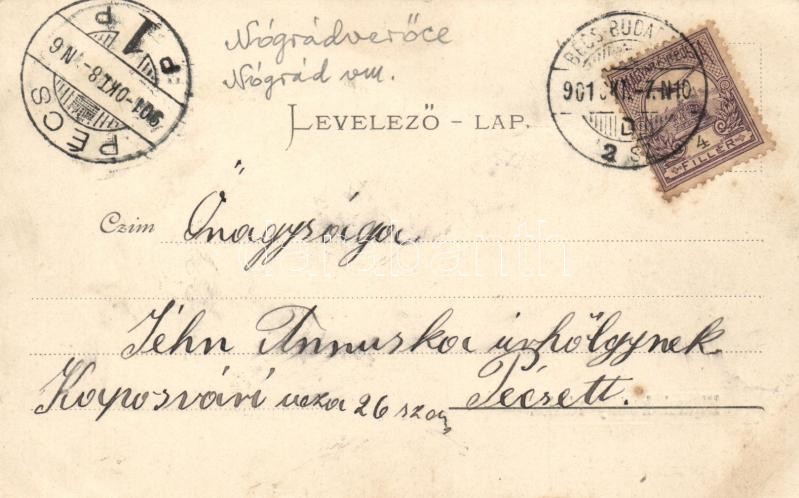 Nógrádverőce
Nógrád vm.
LEVELEZŐ - LAP.
PÉCS
901 OKT. 8 N6
P 1 P
BÉCS-BUDA
901 OKT -7. N10
D
2 SZ
4
FILLÉR
Czim Őnagysága
darabanth
Jéhn Annuska úrhölgynek
Kaposvári ucza 26 szám Pécsett.